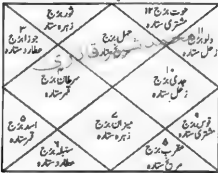 حوت برج ۱۲
مشتری ستارہ
ثور برج
زہرہ ستارہ
حمل برج
۳
جوزا برج
عطارد ستارہ
۱۱
دلو برج
زحل ستارہ
سرطان برج
قمر ستارہ
۱۰
جدی برج
زحل ستارہ
اسد برج ۵
ستارہ
۷
میزان برج
زہرہ ستارہ
قوس برج ۹
مشتری ستارہ
سنبلہ برج
عطارد ستارہ
۸
عقرب برج
مریخ ستارہ